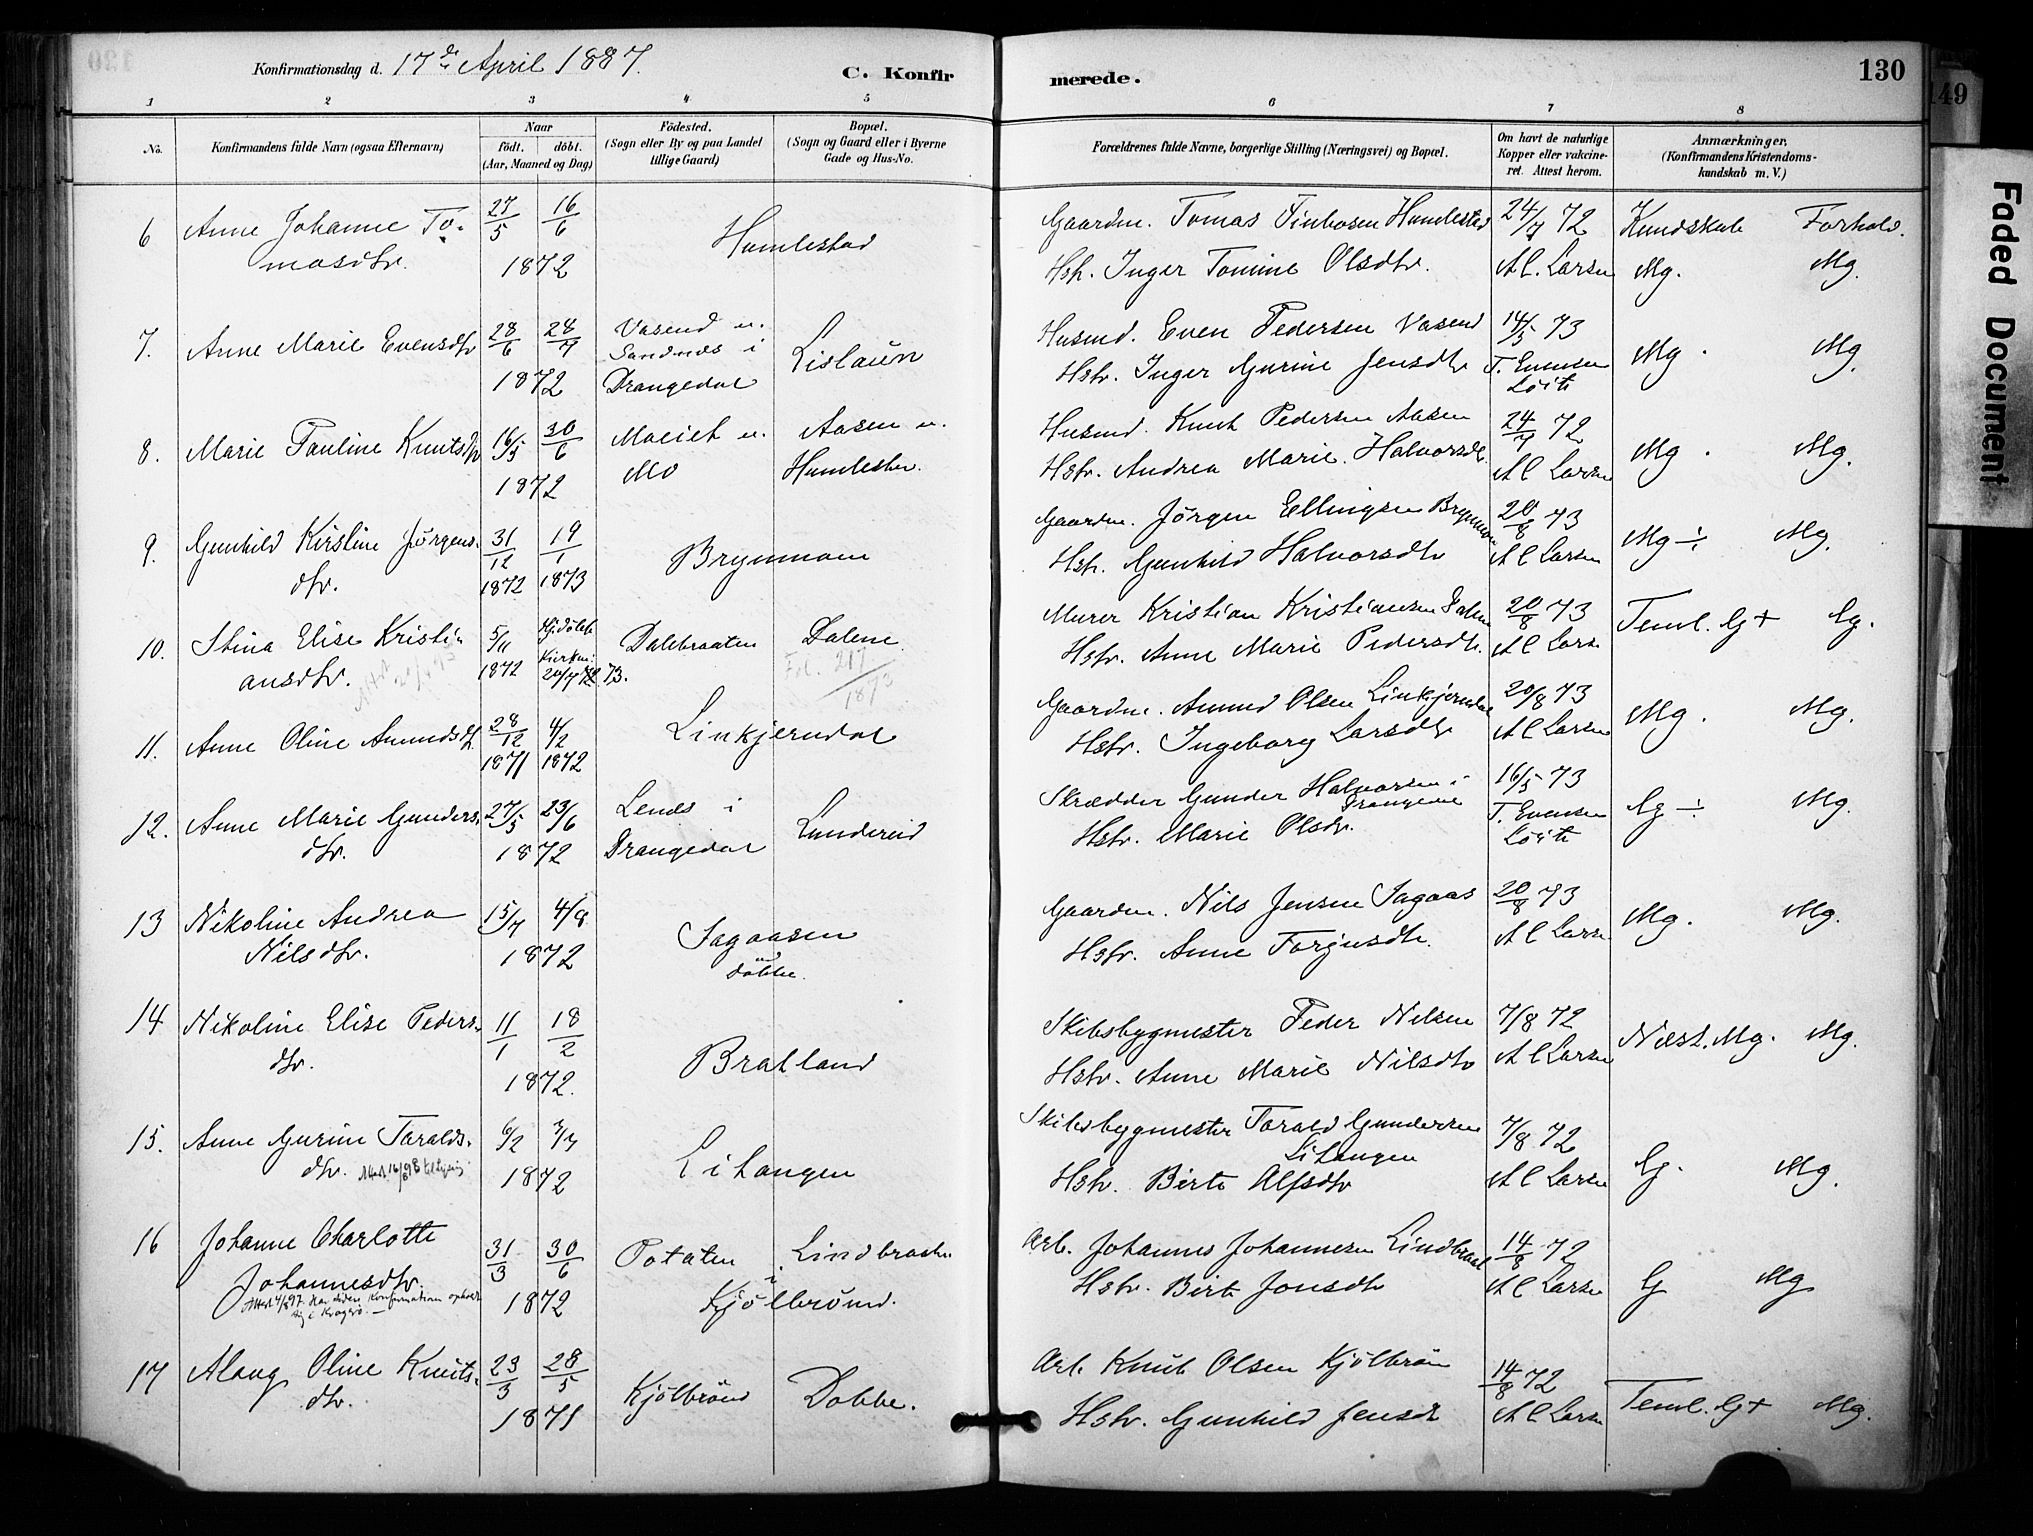 Konfirmationsdag d. 17de April 1887.
C. Konfir
merede.
130
149
Faded Document
1 2 3 4 5 6 7 8
No.
Konfirmandens fulde Navn (ogsaa Efternavn)
Naar
födt. döbt.
(Aar, Maaned og Dag)
Födested.
(Sogn eller By og paa Landet
tillige Gaard)
Bopæl.
(Sogn og Gaard eller i Byerne
Gade og Hus-No.
Forældrenes fulde Navne, borgerlige Stilling (Næringsvei) og Bopæl.
Om havt de naturlige
Kopper eller vakcine-
ret. Attest herom.
Anmærkninger.
(Konfirmandens Kristendoms-
kundskab m. V.)
6 Anne Johanne To-
masdtr.
27/5 16/6
1872
Humlestad
Gaardm. Tomas Finbosen Humlestad
Hstr. Inger Tomine Olsdtr.
24/7 72
A C. Larsen
Kundskab Forhold.
Mg. Mg.
7. Anne Marie Evensdtr
28/6 28/7
1872
Vasend u.
Sandnes i
Drangedal
Lislaún
Husmd. Even Pedersen Vasend
Hstr. Inger Gurine Jensdtr
14/5 73
T. Evensen
Löite
Mg. Mg.
8. Marie Pauline Knutsdtr
16/5 30/6
1872
Moeiet u.
Mo
Aasen u.
Humlestad.
Husmd. Knut Pedersen Aasen
Hstr. Andrea Marie Halvorsdtr.
24/7 72
A C Larsen
Mg. Mg.
9. Gunhild Kirstine Jörgens-
dtr.
31/12 19/1
1872 1873
Brynmoen
Gaardm. Jörgen Ellingsen Brynmoen
Hstr. Gunhild Halvorsdtr
20/8 73
A C Larsen
Mg ÷ Mg.
10. Stina Elise Kristi-
ansdtr.
5/11
1872
Hjdöbt
Dalebraaten Dalene.
Murer Kristian Kristiansen Dalen
Hstr. Anne Marie Pedersdtr.
20/8 73
A C Larsen
Teml. G+ Mg.
11. Anne Oline Amundsdtr
28/12 4/2
1871 1872
Linkjerndal
Gaardm. Amund Olsen Linkjerndal
Hstr. Ingeborg Larsdtr
20/8 73
A C Larsen
Mg. Mg.
12. Anne Marie Gunders-
dtr.
27/5 23/6
1872
Lends i
Drangedal
Lundereid
Skrædder Gunder Halvorsen i
Drangedal
Hstr. Marie Olsdtr.
16/5 73
T. Evensen
Löite
G ÷ Mg.
13 Nikoline Andrea
Nilsdtr.
15/7 4/8
1872
Sagaasen
Dobbe.
Gaardm. Nils Jensen Sagaas
Hstr. Anne Torjusdtr.
20/8 73
A C Larsen
Mg. Mg.
14 Nikoline Elise Peders-
dtr.
11/1 18/2
1872.
Bratland
Skibsbygmester Peder Nilsen
Hstr. Anne Marie Nilsdtr
7/8 72
A C Larsen
Næst. Mg. Mg.
15. Anne Gurine Taralds-
dtr.
6/2 7/7
1872
Litangen
Skibsbygmester Tarald Gundersen
Litangen
Hstr. Birte Alfsdtr
7/8 72
A C Larsen
G. Mg.
16 Johanne Charlotte
Johannesdtr.
Attest 4/5 97. Har siden Konfirmation opholdt
sig i Kragerö.
31/3 30/6
1872
Potaten Lindbraaten
i
Kjölbrönd.
Arb. Johannes Johannesen Lindbraat
Hstr. Birte Jonsdtr
14/8 72
A C Larsen
G Mg
17 Alaug Oline Knuts-
dtr.
23/3 28/5
1871
Kjölbrönd Dobbe.
Arb. Knut Olsen Kjölbrön
Hstr. Gunhild Jensdtr
14/8 72
A C Larsen
Teml. G+ Mg.